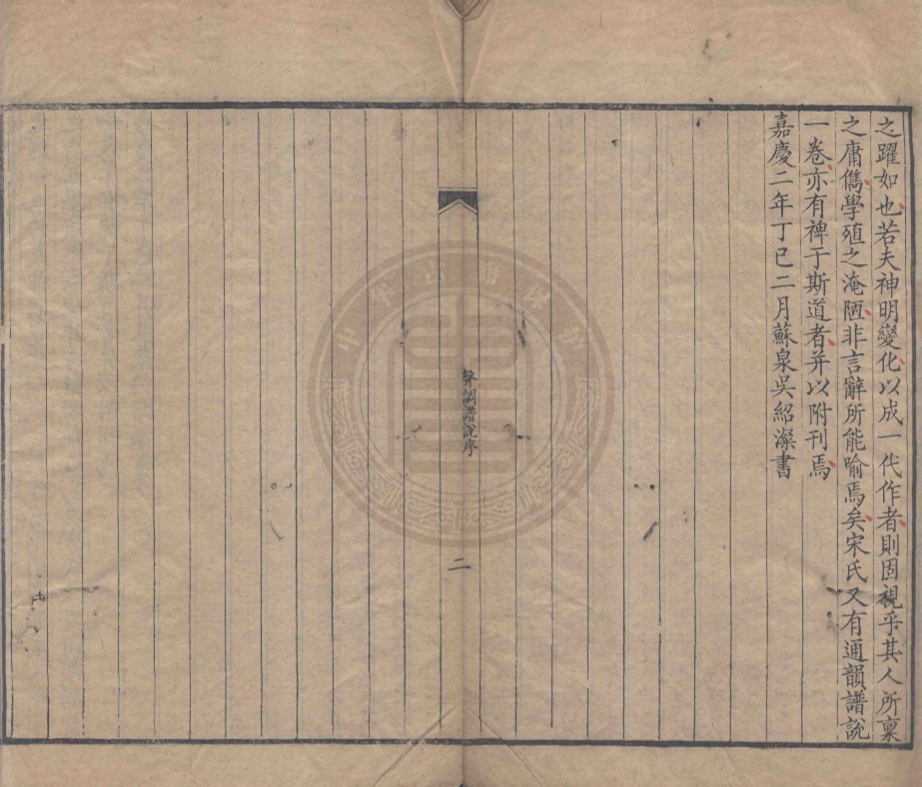 之躍如也若夫神明變化以成一代作者則固視乎其人所稟
之庸儁學殖之淹陋非言辭所能喻焉矣宋氏又有通韻譜說
一卷亦有裨于斯道者并以附刊焉
嘉慶二年丁巳二月蘇泉吳紹澯書
聲調譜說序
二